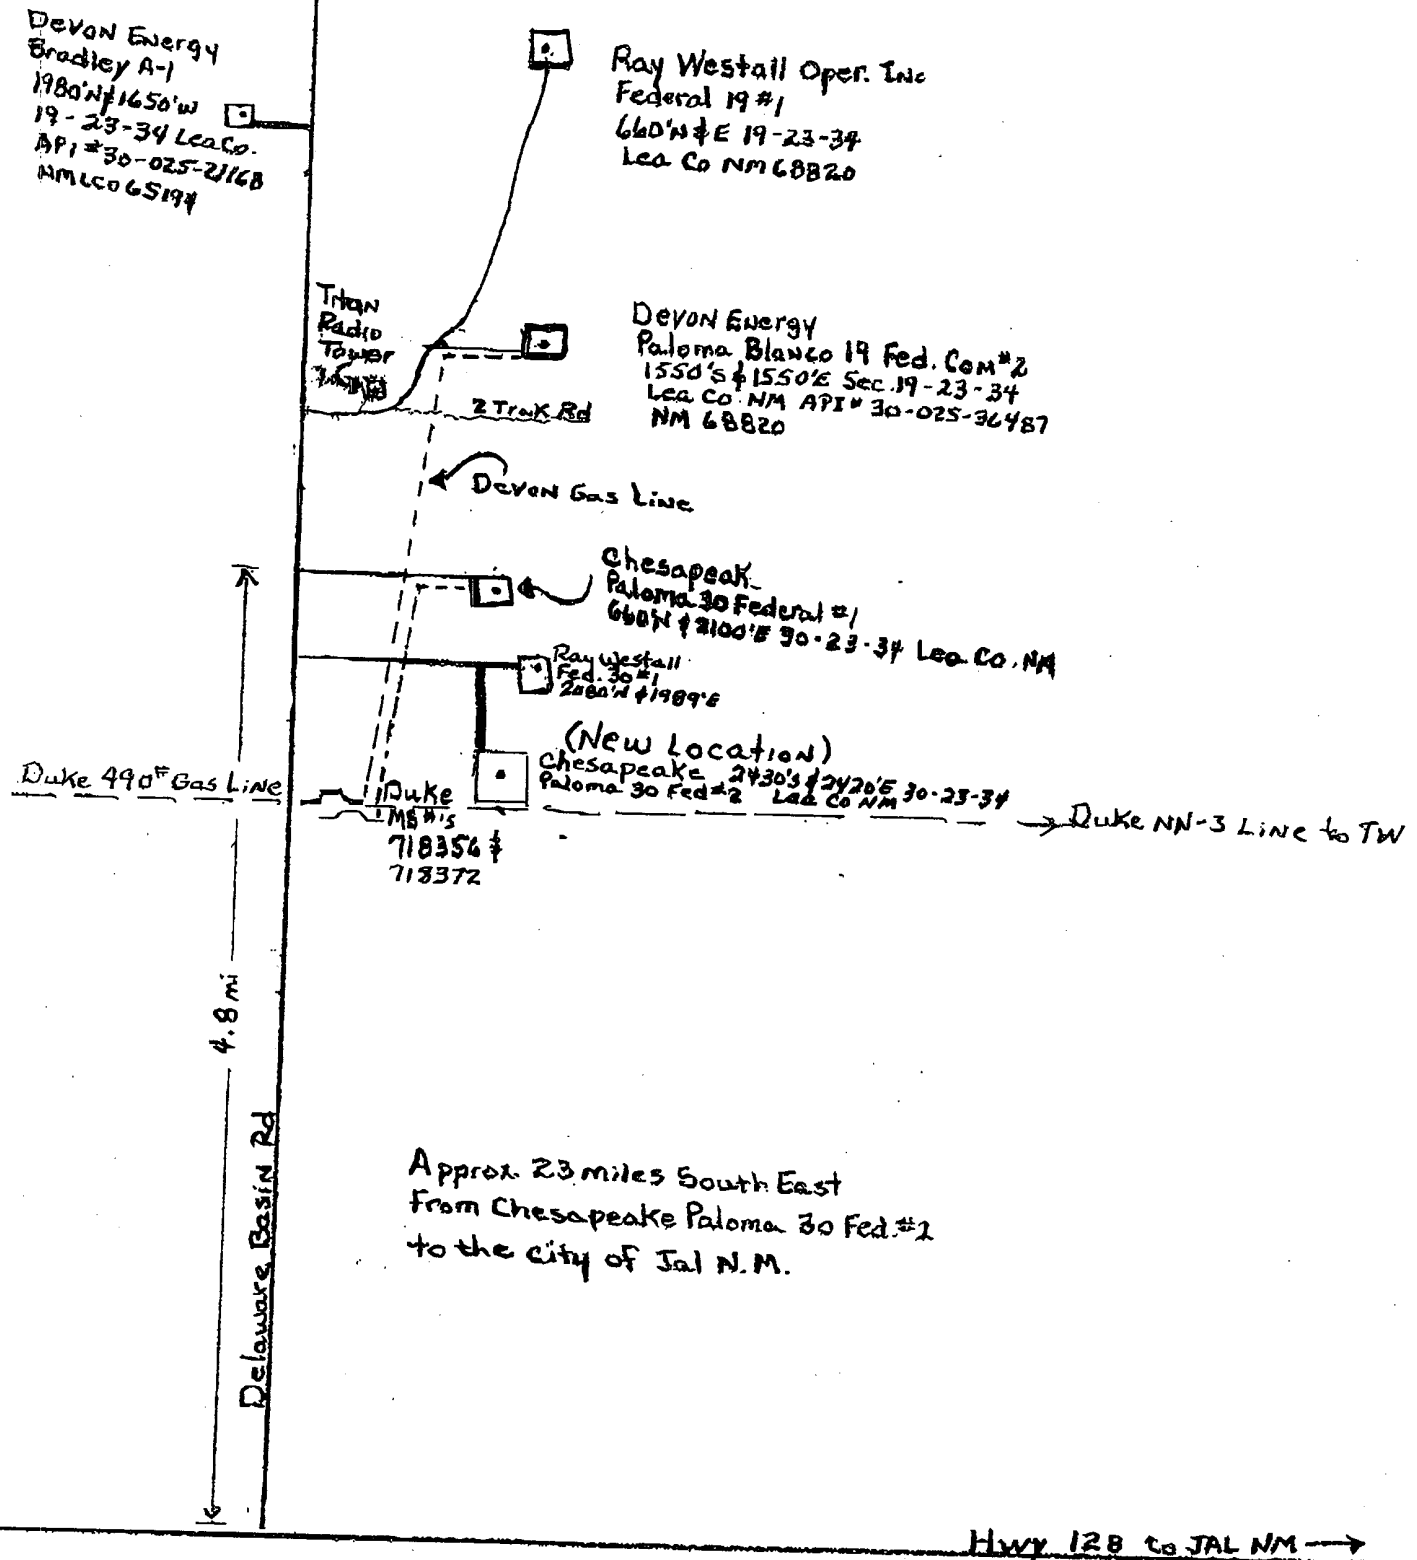 Devon Energy
Bradley A-1
1980'N & 1650'W
19-23-34 Lea Co.
API #30-025-21168
NMLC065194
Ray Westall Oper. Inc
Federal 19 #1
660'N & E 19-23-34
Lea Co NM 68820
Titan
Radio
Tower
Devon Energy
Paloma Blanco 19 Fed. Com #2
1550'S & 1550'E Sec. 19-23-34
Lea Co. NM API # 30-025-36487
NM 68820
2 Trak Rd
Devon Gas Line
Chesapeak
Paloma 30 Federal #1
660'N & 2100'E 30-23-34 Lea Co. NM
Ray Westall
Fed. 30 #1
2080'N & 1989'E
(New Location)
Chesapeake 2430's & 2420'E 30-23-34
Paloma 30 Fed #2 Lea Co NM
Duke 490# Gas Line
Duke
MS #'s
718356 &
718372
Duke NN-3 Line to TW
4.8 mi
Delaware Basin Rd
Approx. 23 miles South East
From Chesapeake Paloma 30 Fed. #2
to the city of Jal N.M.
Hwy 128 to JAL NM